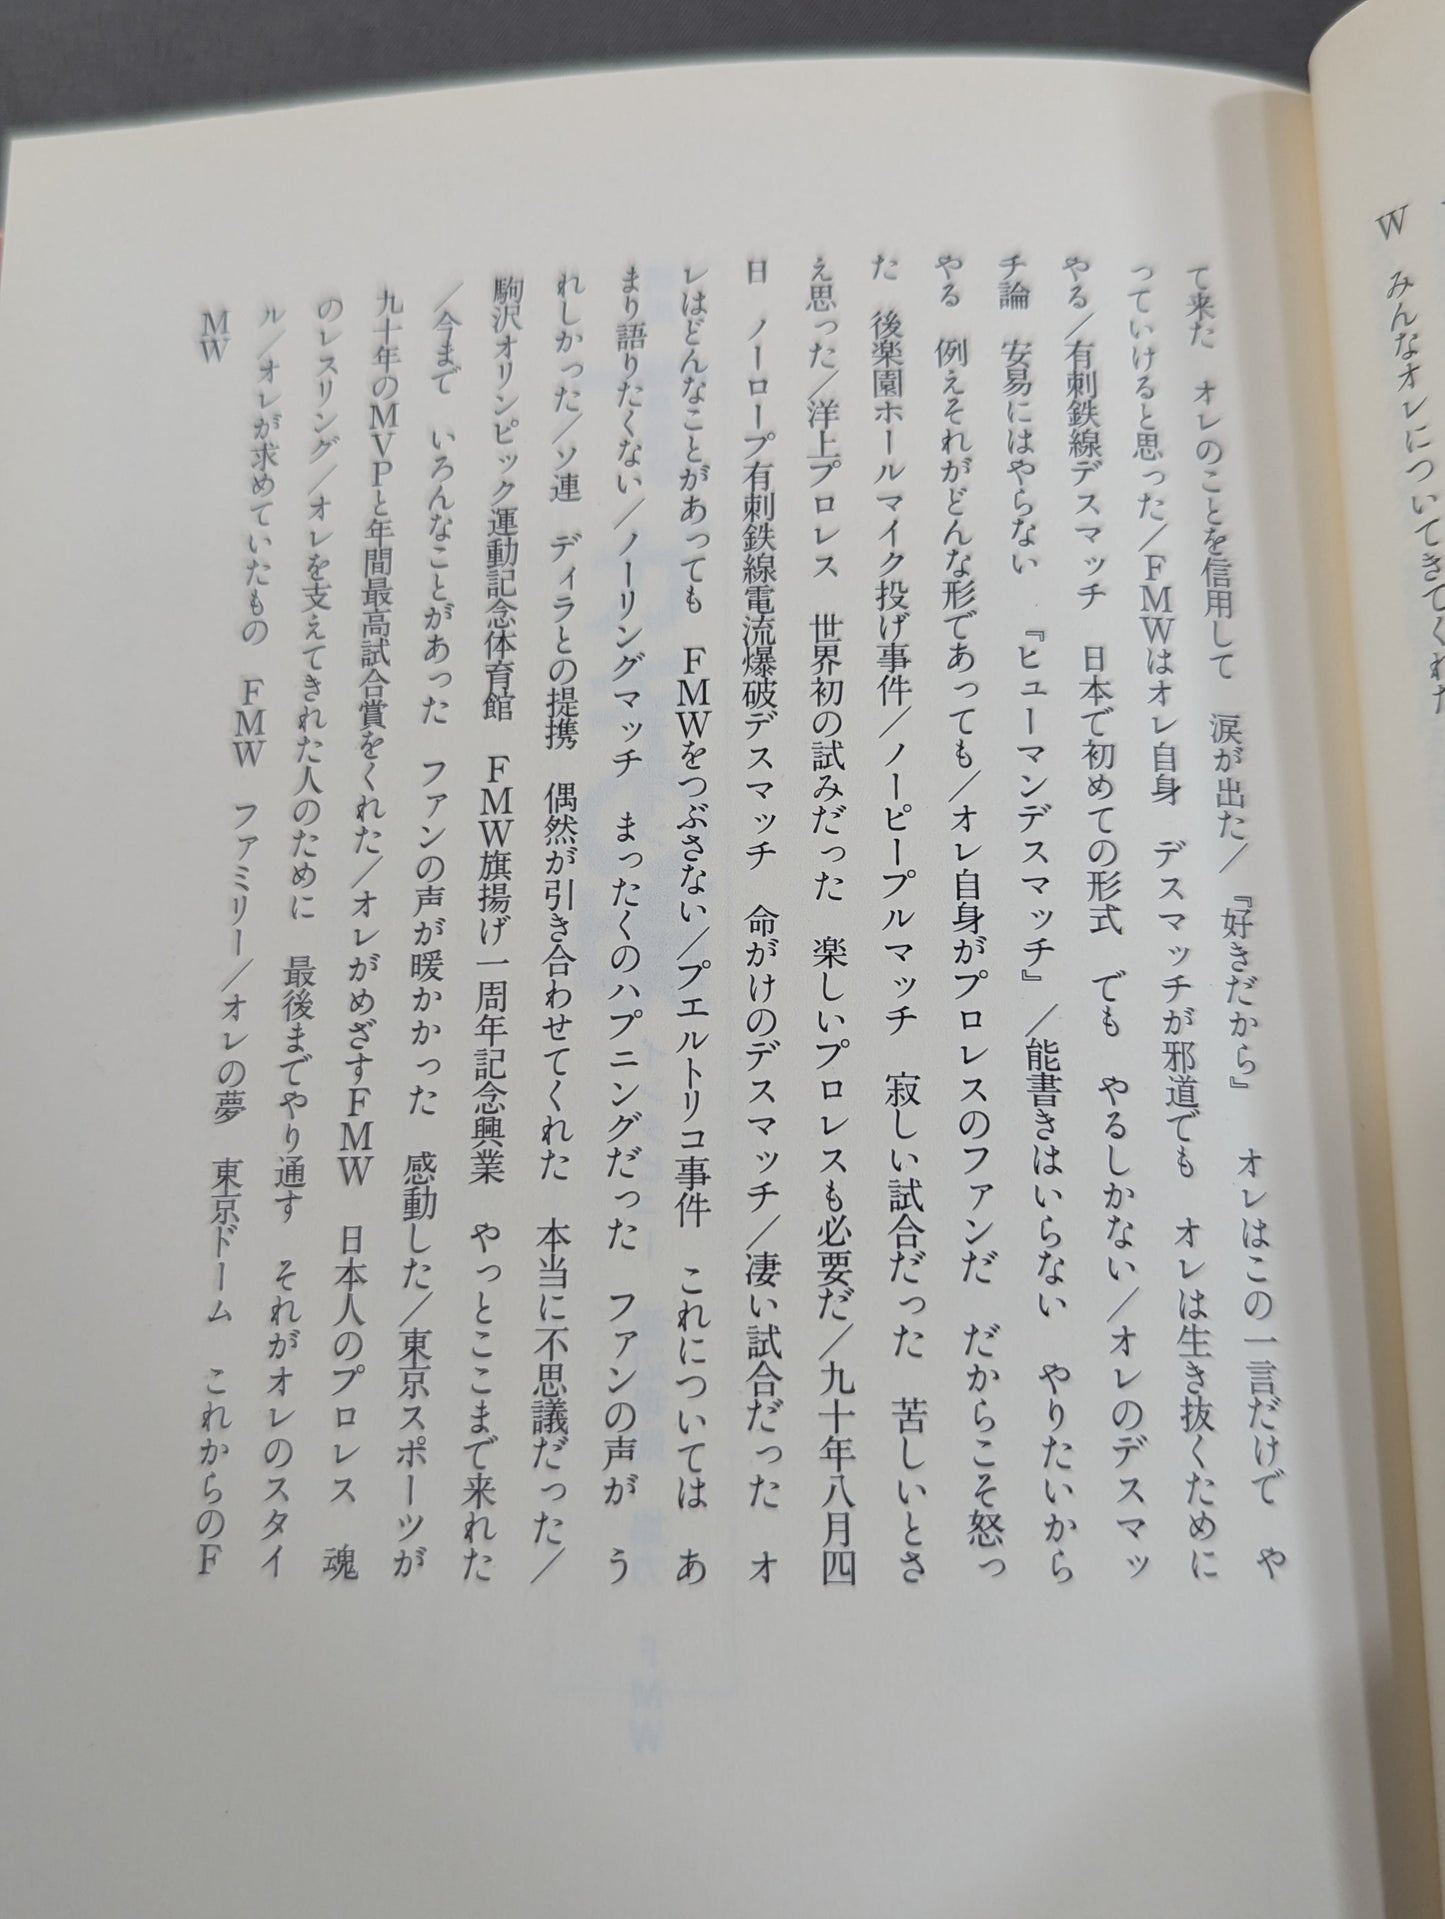 W　みんなオレについてきてくれた
て来た　オレのことを信用して　涙が出た／『好きだから』　オレはこの一言だけで　や
っていけると思った／FMWはオレ自身　デスマッチが邪道でも　オレは生き抜くために
やる／有刺鉄線デスマッチ　日本で初めての形式　でも　やるしかない／オレのデスマッ
チ論　安易にはやらない　『ヒューマンデスマッチ』／能書きはいらない　やりたいから
やる　例えそれがどんな形であっても／オレ自身がプロレスのファンだ　だからこそ怒っ
た　後楽園ホールマイク投げ事件／ノーピープルマッチ　寂しい試合だった　苦しいとさ
え思った／洋上プロレス　世界初の試みだった　楽しいプロレスも必要だ／九十年八月四
日　ノーロープ有刺鉄線電流爆破デスマッチ　命がけのデスマッチ／凄い試合だった　オ
レはどんなことがあっても　FMWをつぶさない／プエルトリコ事件　これについては　あ
まり語りたくない／ノーリングマッチ　まったくのハプニングだった　ファンの声が　う
れしかった／ソ連　ディラとの提携　偶然が引き合わせてくれた　本当に不思議だった／
駒沢オリンピック運動記念体育館　FMW旗揚げ一周年記念興業　やっとここまで来れた
／今まで　いろんなことがあった　ファンの声が暖かかった　感動した／東京スポーツが
九十年のMVPと年間最高試合賞をくれた／オレがめざすFMW　日本人のプロレス　魂
のレスリング／オレを支えてきれた人のために　最後までやり通す　それがオレのスタイ
ル／オレが求めていたもの　FMW　ファミリー／オレの夢　東京ドーム　これからのF
MW